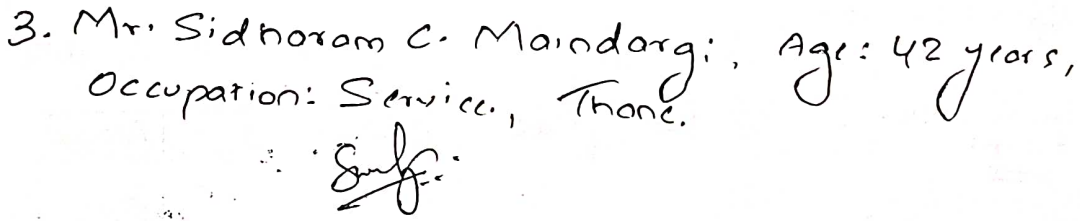 3. Mr. Sidhoram C. Maindargi, Age: 42 years,
Occupation: Service, Thane.